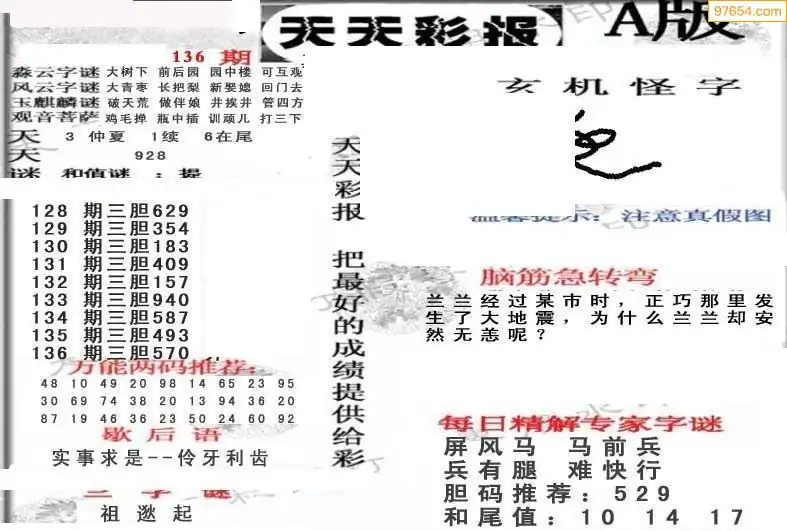 97654.com
天天彩报
A版
136 期
森云字谜 大树下 前后园 园中楼 可互观
风云字谜 大青枣 长把梨 新娶媳 回门去
玉麒麟谜 破天荒 做伴娘 井挨井 管四方
观音菩萨 鸡毛掸 瓶中插 训顽儿 打三下
天 3 仲夏 1续 6在尾
天 928
谜 和值谜 : 提
128 期三胆629
129 期三胆354
130 期三胆183
131 期三胆409
132 期三胆157
133 期三胆940
134 期三胆587
135 期三胆493
136 期三胆570
万能两码推荐:
48 10 49 20 98 14 65 23 95
30 69 74 38 20 13 94 36 20
87 19 46 36 23 50 24 60 92
歇后语
实事求是--伶牙利齿
三字谜
祖逖起
天天彩报 把最好的成绩提供给彩
玄机怪字
温馨提示: 注意真假图
脑筋急转弯
兰兰经过某市时，正巧那里发
生了大地震，为什么兰兰却安
然无恙呢？
每日精解专家字谜
屏风马 马前兵
兵有腿 难快行
胆码推荐: 529
和尾值: 10 14 17